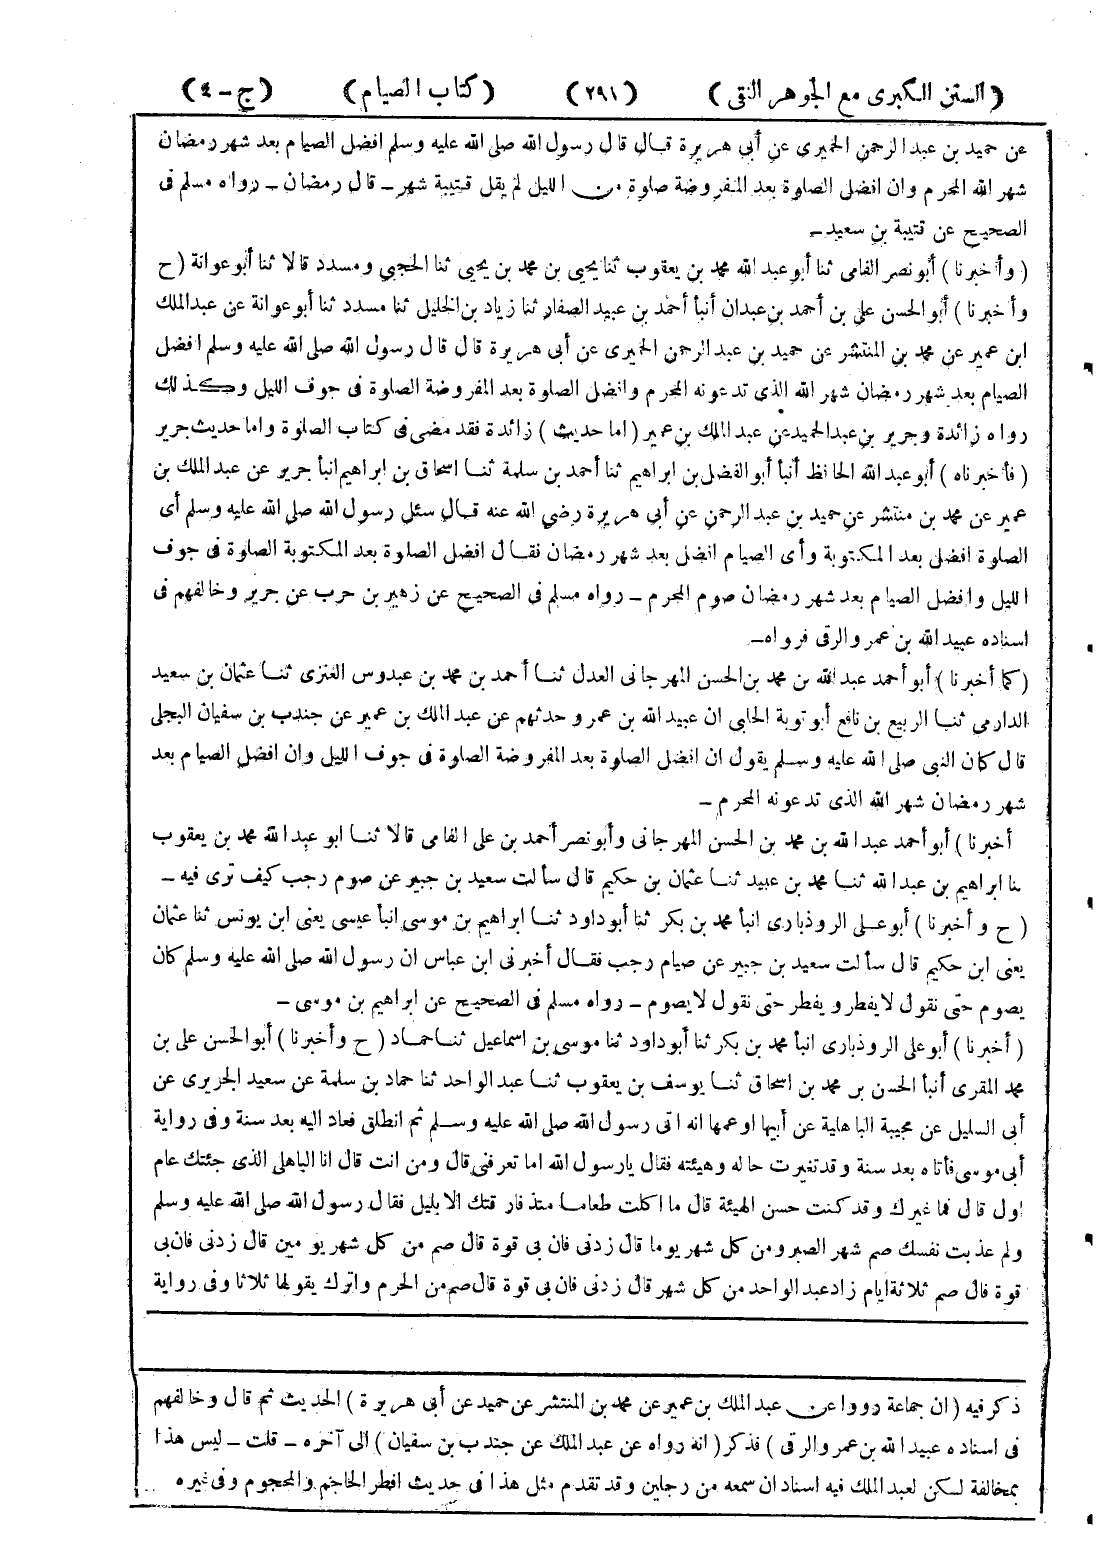 (السنن الكبرى مع الجوهر النقى) (٢٩١) (كتاب الصيام) (ج-٤)
عن حميد بن عبد الرحمن الحميرى عن أبى هريرة قال قال رسول الله صلى الله عليه وسلم افضل الصيام بعد شهر رمضان
شهر الله المحرم وان افضل الصلوة بعد المفروضة صلوة من الليل لم يقل قتيبة شهر - قال رمضان - رواه مسلم فى
الصحيح عن قتيبة بن سعيد-
(وأخبرنا) أبو نصر الفامى ثنا أبو عبد الله محمد بن يعقوب ثنا يحيى بن محمد بن يحيى ثنا الحجبي ومسدد قالا ثنا أبو عوانة (ح
وأخبرنا) أبو الحسن علي بن أحمد بن عبدان أنبأ أحمد بن عبيد الصفار ثنا زياد بن الخليل ثنا مسدد ثنا أبو عوانة عن عبد الملك
ابن عمير عن محمد بن المنتشر عن حميد بن عبد الرحمن الحميرى عن أبى هريرة قال قال رسول الله صلى الله عليه وسلم افضل
الصيام بعد شهر رمضان شهر الله الذى تدعونه المحرم وافضل الصلوة بعد المفروضة الصلوة فى جوف الليل وكذلك
رواه زائدة وجرير بن عبد الحميد عن عبد الملك بن عمير (اما حديث) زائدة فقد مضى فى كتاب الصلوة واما حديث جرير
(فأخبرناه) أبو عبد الله الحافظ أنبأ أبو الفضل بن ابراهيم ثنا أحمد بن سلمة ثنا اسحاق بن ابراهيم انبأ جرير عن عبد الملك بن
عمير عن محمد بن منتشر عن حميد بن عبد الرحمن عن أبي هريرة رضي الله عنه قال سئل رسول الله صلى الله عليه وسلم أى
الصلوة افضل بعد المكتوبة وأى الصيام افضل بعد شهر رمضان فقال افضل الصلوة بعد المكتوبة الصلوة فى جوف
الليل وافضل الصيام بعد شهر رمضان صوم المحرم - رواه مسلم فى الصحيح عن زهير بن حرب عن جرير وخالفهم فى
اسناده عبيد الله بن عمر والرقى فرواه-
(كما أخبرنا) أبو أحمد عبد الله بن محمد بن الحسن المهرجانى العدل ثنا أحمد بن محمد بن عبدوس العنزى ثنا عثمان بن سعيد
الدارمى ثنا الربيع بن نافع أبو توبة الحلبى ان عبيد الله بن عمر وحدثهم عن عبد الملك بن عمير عن جندب بن سفيان البجلى
قال كان النبى صلى الله عليه وسلم يقول ان افضل الصلوة بعد المفروضة الصلوة فى جوف الليل وان افضل الصيام بعد
شهر رمضان شهر الله الذى تدعونه المحرم -
أخبرنا) أبو أحمد عبد الله بن محمد بن الحسن المهرجانى وأبو نصر أحمد بن على الفامى قالا ثنا ابو عبد الله محمد بن يعقوب
ثنا ابراهيم بن عبد الله ثنا محمد بن عبيد ثنا عثمان بن حكيم قال سألت سعيد بن جبير عن صوم رجب كيف ترى فيه -
(ح وأخبرنا) أبو على الروذبارى انبأ محمد بن بكر ثنا أبو داود ثنا ابراهيم بن موسى انبأ عيسى يعنى ابن يونس ثنا عثمان
يعنى ابن حكيم قال سألت سعيد بن جبير عن صيام رجب فقال أخبرنى ابن عباس ان رسول الله صلى الله عليه وسلم كان
يصوم حتى نقول لا يفطر ويفطر حتى نقول لا يصوم - رواه مسلم فى الصحيح عن ابراهيم بن موسى -
(أخبرنا) أبو على الروذبارى انبأ محمد بن بكر ثنا أبو داود ثنا موسى بن اسماعيل ثنا حماد (ح وأخبرنا) أبو الحسن على بن
محمد المقرى أنبأ الحسن بن محمد بن اسحاق ثنا يوسف بن يعقوب ثنا عبد الواحد ثنا حماد بن سلمة عن سعيد الجريرى عن
أبى السليل عن مجيبة الباهلية عن أبيها او عمها انه اتى رسول الله صلى الله عليه وسلم ثم انطلق فعاد اليه بعد سنة وفى رواية
أبى موسى فأتاه بعد سنة وقد تغيرت حاله وهيئته فقال يارسول الله اما تعرفنى قال ومن انت قال انا الباهلى الذى جئتك عام
اول قال فما غيرك وقد كنت حسن الهيئة قال ما اكلت طعاما منذ فارقتك الا بليل فقال رسول الله صلى الله عليه وسلم
ولم عذبت نفسك صم شهر الصبر ومن كل شهر يوما قال زدنى فان بى قوة قال صم من كل شهر يومين قال زدنى فان بى
قوة قال صم ثلاثة أيام زاد عبد الواحد من كل شهر قال زدنى فان بى قوة قال صم من الحرم واترك يقولها ثلاثا وفى رواية
ذكر فيه (ان جماعة رووا عن عبد الملك بن عمير عن محمد بن المنتشر عن حميد عن أبى هريرة) الحديث ثم قال وخالفهم
فى اسناده عبيد الله بن عمر والرقى) فذكر (انه رواه عن عبد الملك عن جندب بن سفيان) الى آخره - قلت - ليس هذا
بمخالفة لسكن لعبد الملك فيه اسناد ان سمعه من رجلين وقد تقدم مثل هذا فى حديث افطر الحاجم والمحجوم وفى غيره